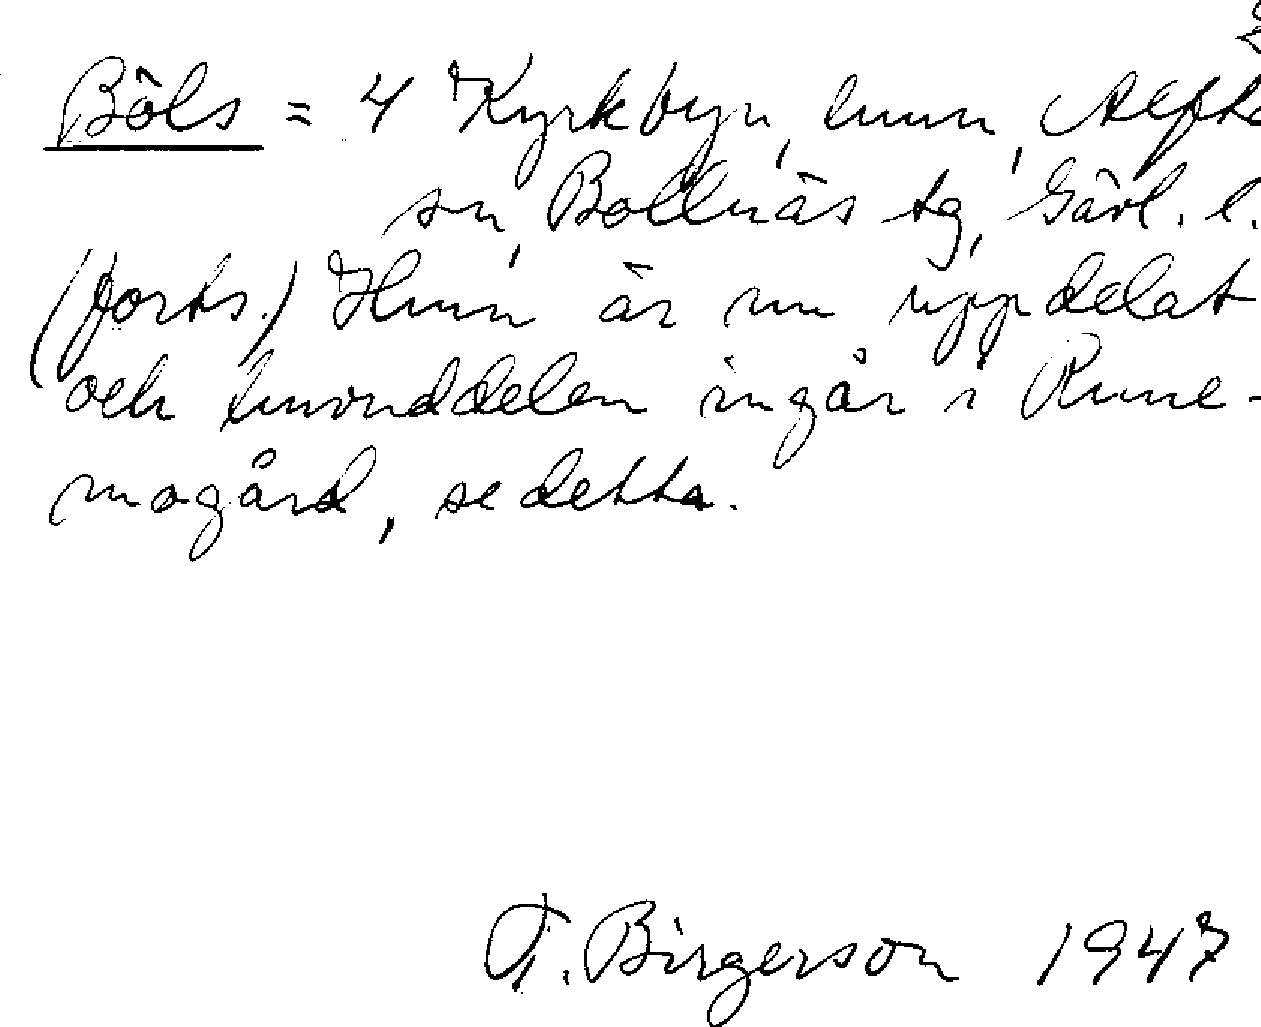 Böls = 4 Kyrkbyn, hmn, Alfta
sn, Bollnäs tg, Gävl. l.
(forts.) Hmn är nu uppdelat
och huvuddelen ingår i Rune-
mogård, se detta.
T. Birgerson 1947